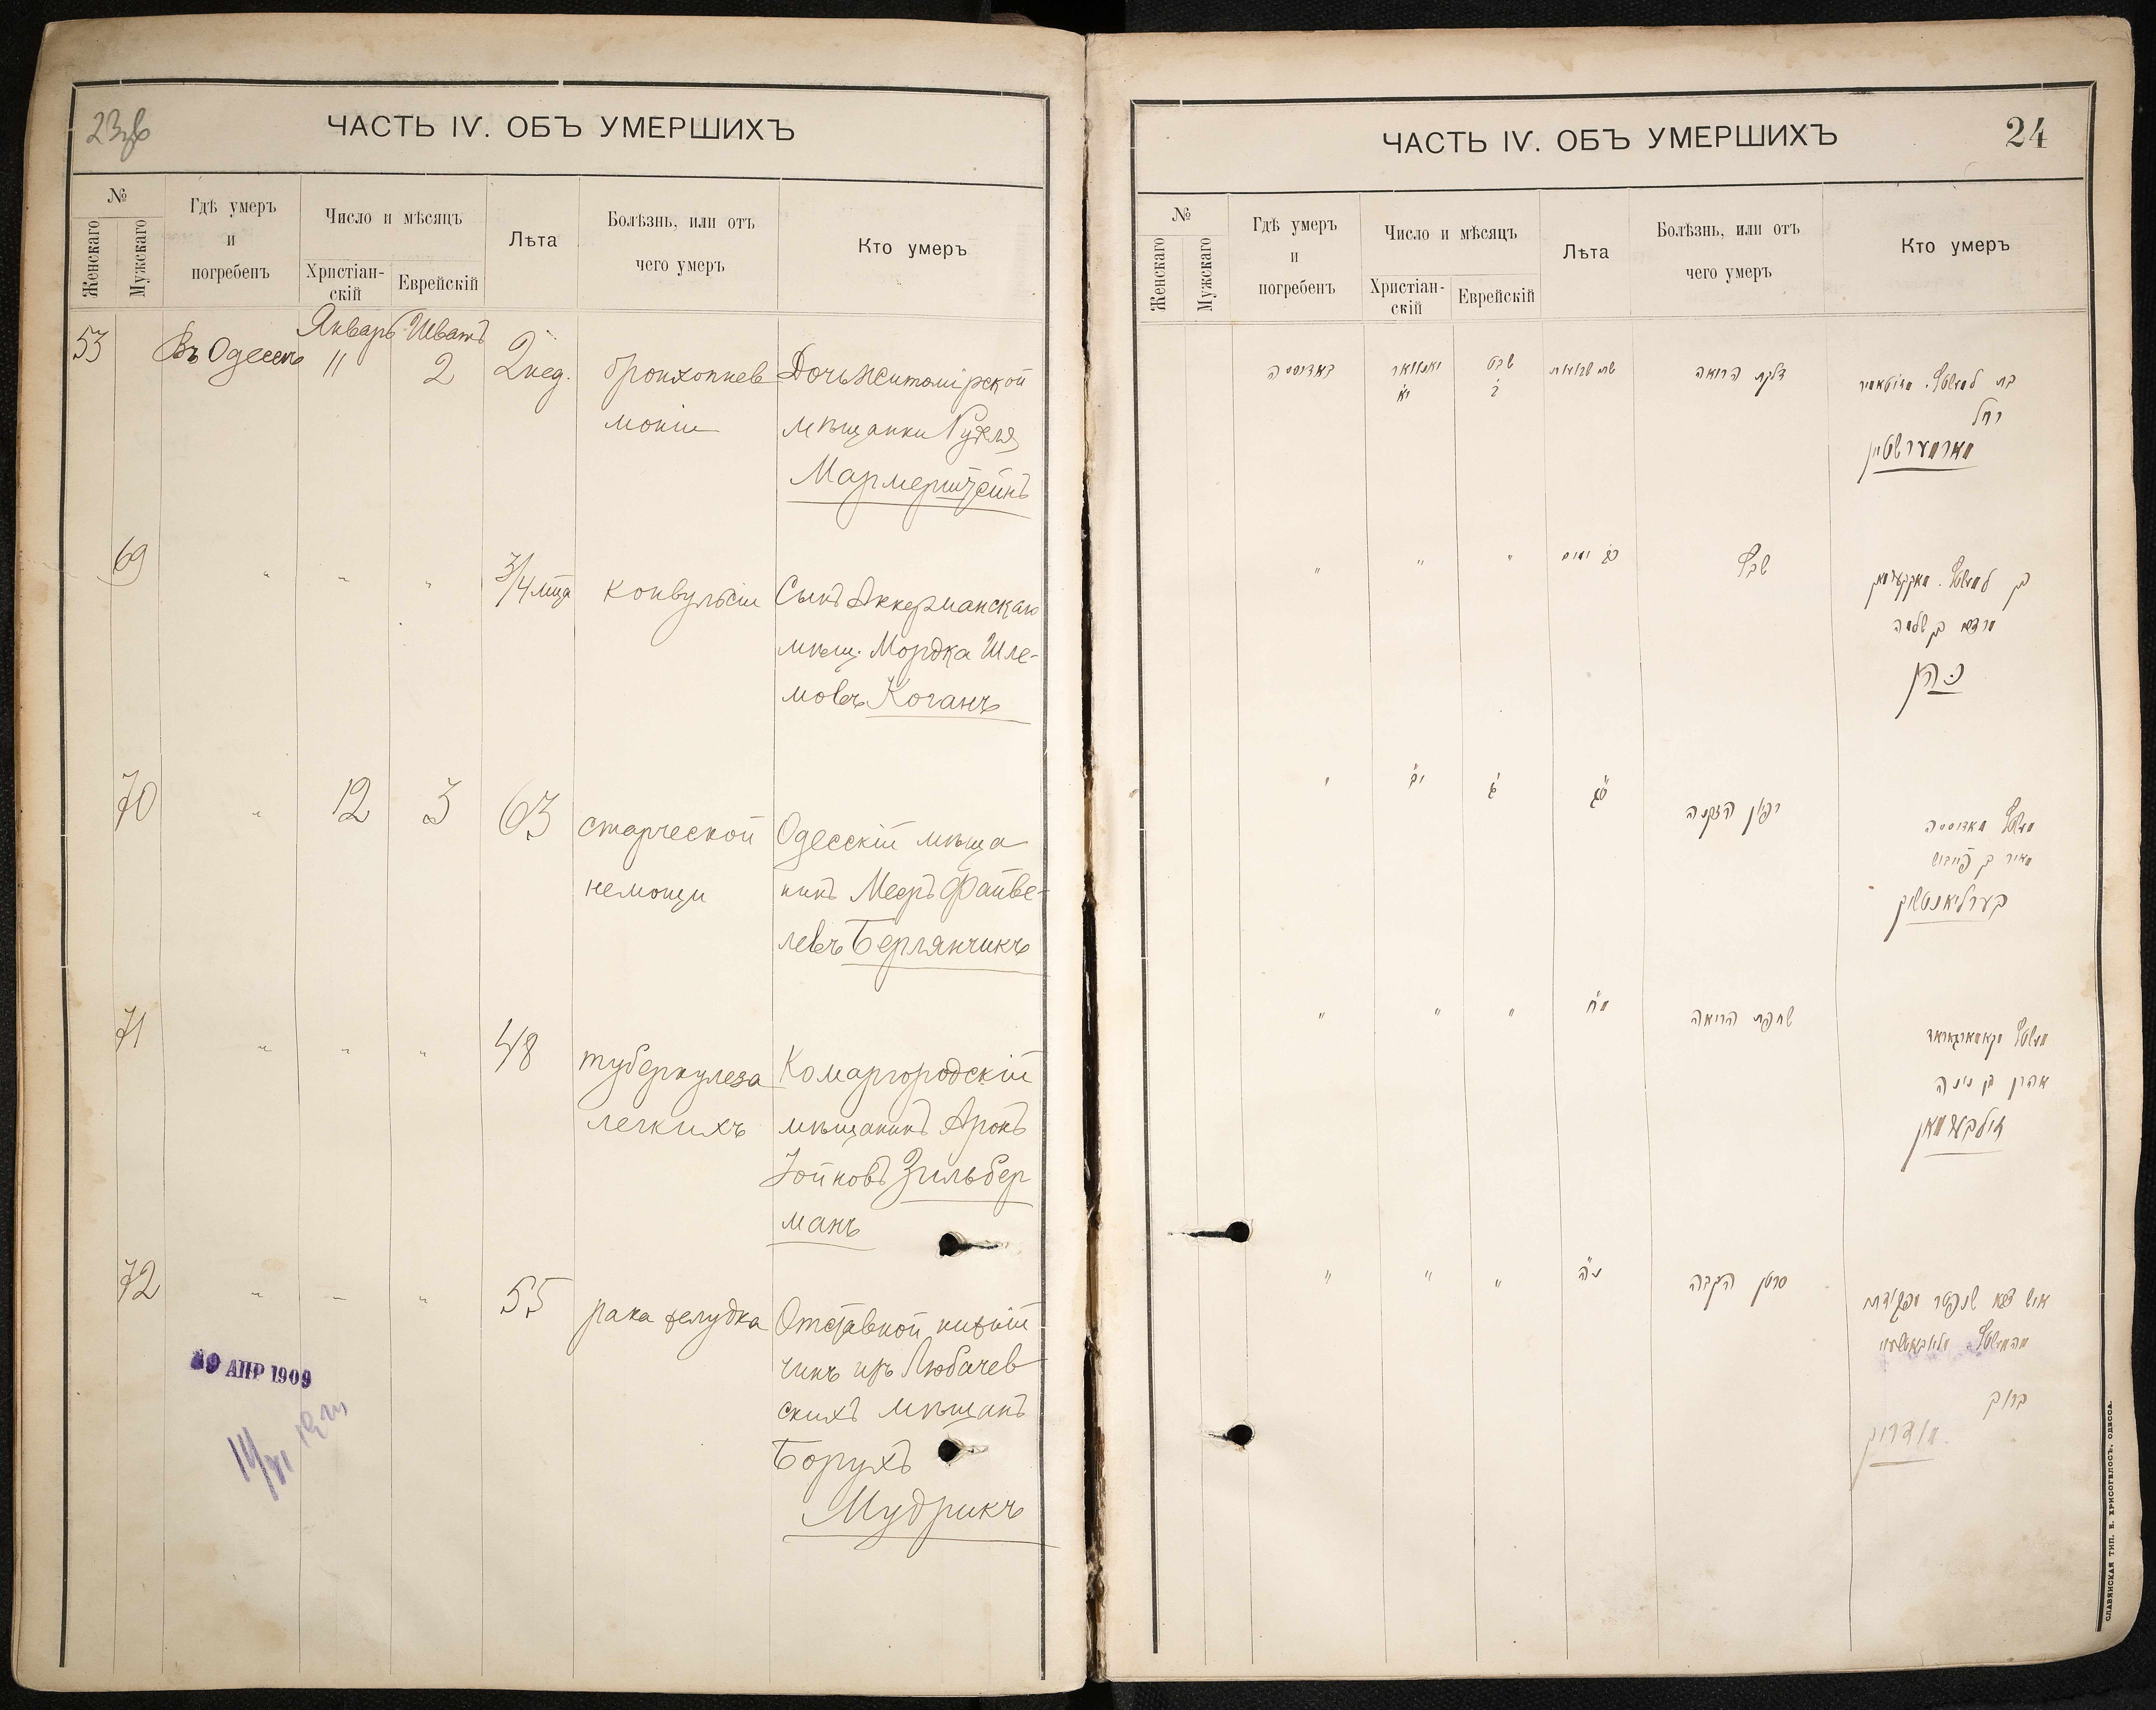 23об
ЧАСТЬ IV. ОБЪ УМЕРШИХЪ
№
Женскаго
Мужскаго
Гдѣ умеръ
и
погребенъ
Число и мѣсяцъ
Христіан-
скій
Еврейскій
Лѣта
Болѣзнь, или отъ
чего умеръ
Кто умеръ
Январь Шватъ
53 Въ Одессѣ 11 2 2 нед. бронхопнев Дочь Житомірской
моніи мѣщанки Рухля
Мармерштейнъ
69 " " " 3/4 мца конвульсіи Сынъ Аккерманскаго
мѣщ. Мордка Шле-
мовъ Коганъ
70 " 12 3 63 старческой Одесскій мѣща
немощи нинъ Мееръ Файве-
левъ Берлянчикъ
71 " " " 48 туберкулеза Комаргородскій
легкихъ мѣщанинъ Аронъ
Іойновъ Зильбер
манъ
72 " " " 55 рака желудка Отставной нижній
чинъ изъ Любачев
скихъ мѣщанъ
Борухъ
Мудрикъ
АПР 1909
ЧАСТЬ IV. ОБЪ УМЕРШИХЪ
24
№
Женскаго
Мужскаго
Гдѣ умеръ
и
погребенъ
Число и мѣсяцъ
Христіан-
скій
Еврейскій
Лѣта
Болѣзнь, или отъ
чего умеръ
Кто умеръ
באדיססה יאנוואר שבט דלקת הריאה
י"א ב'
רחל
מארמערשטיין
" " " כ"ג ימים
מרדכי בן שלמה
כהן
" י"ב ג' ס"ג רפיון הזקנה
מאדיססה
מאיר בן פייביש
בערליאנטשיק
" " " מ"ח שחפת הריאה
אהרן בן יונה
זילבערמאן
" " " נ"ה סרטן הקבה
איש צבא
ברוך
מודריק
СЛАВЯНСКАЯ ТИП. Н. ХРИСОГЕЛОСЪ. ОДЕССА.